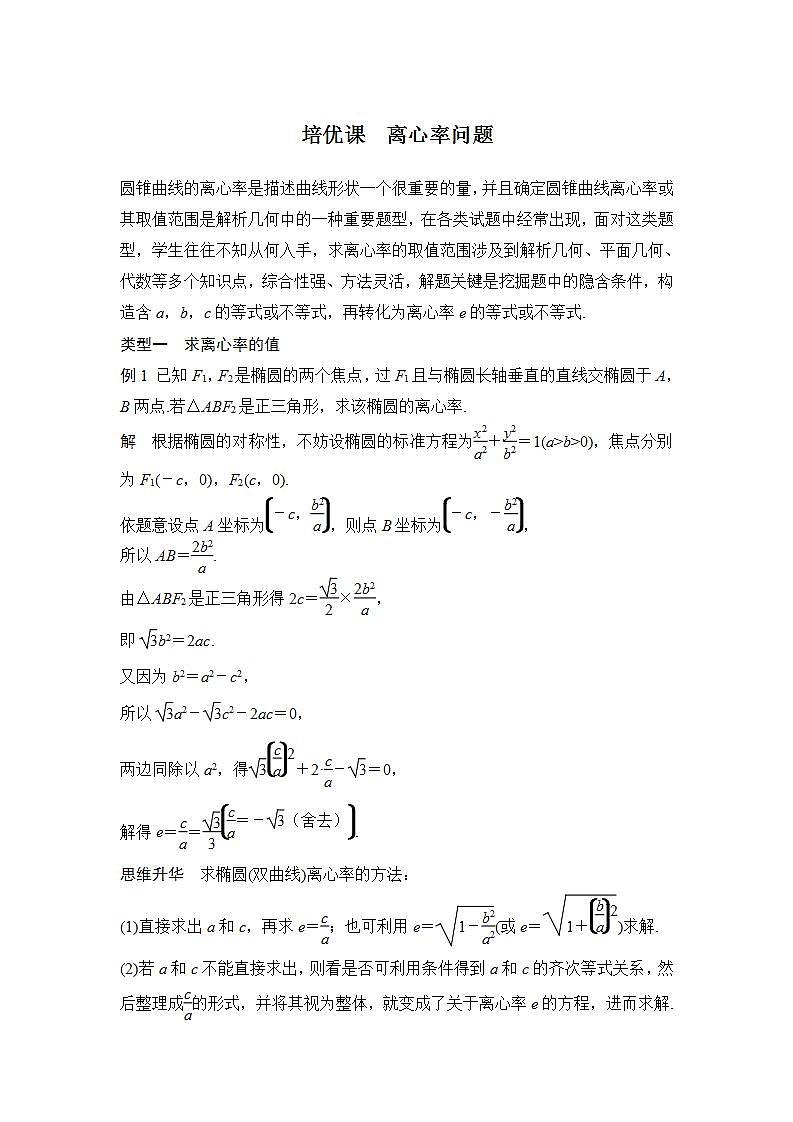 培优课　离心率问题
圆锥曲线的离心率是描述曲线形状一个很重要的量,并且确定圆锥曲线离心率或
其取值范围是解析几何中的一种重要题型,在各类试题中经常出现,面对这类题
型,学生往往不知从何入手,求离心率的取值范围涉及到解析几何、平面几何、
代数等多个知识点,综合性强、方法灵活,解题关键是挖掘题中的隐含条件,构
造含 a,b,c 的等式或不等式,再转化为离心率 e 的等式或不等式.
类型一　求离心率的值
例 1 已知 F₁,F₂是椭圆的两个焦点,过 F₁且与椭圆长轴垂直的直线交椭圆于 A,
B 两点.若△ABF₂是正三角形,求该椭圆的离心率.
解　根据椭圆的对称性,不妨设椭圆的标准方程为x²/a²+y²/b²=1(a>b>0),焦点分别
为 F₁(-c,0),F₂(c,0).
依题意设点 A 坐标为(-c,b²/a),则点 B 坐标为(-c,-b²/a),
所以 AB=2b²/a.
由△ABF₂是正三角形得 2c=√3/2×2b²/a,
即√3b²=2ac.
又因为 b²=a²-c²,
所以√3a²-√3c²-2ac=0,
两边同除以 a²,得√3(c/a)²+2·c/a-√3=0,
解得 e=c/a=√3/3(c/a=-√3(舍去)).
思维升华　求椭圆(双曲线)离心率的方法:
(1)直接求出 a 和 c,再求 e=c/a;也可利用 e=√(1-b²/a²)(或 e=√(1+(b/a)²))求解.
(2)若 a 和 c 不能直接求出,则看是否可利用条件得到 a 和 c 的齐次等式关系,然
后整理成c/a的形式,并将其视为整体,就变成了关于离心率 e 的方程,进而求解.